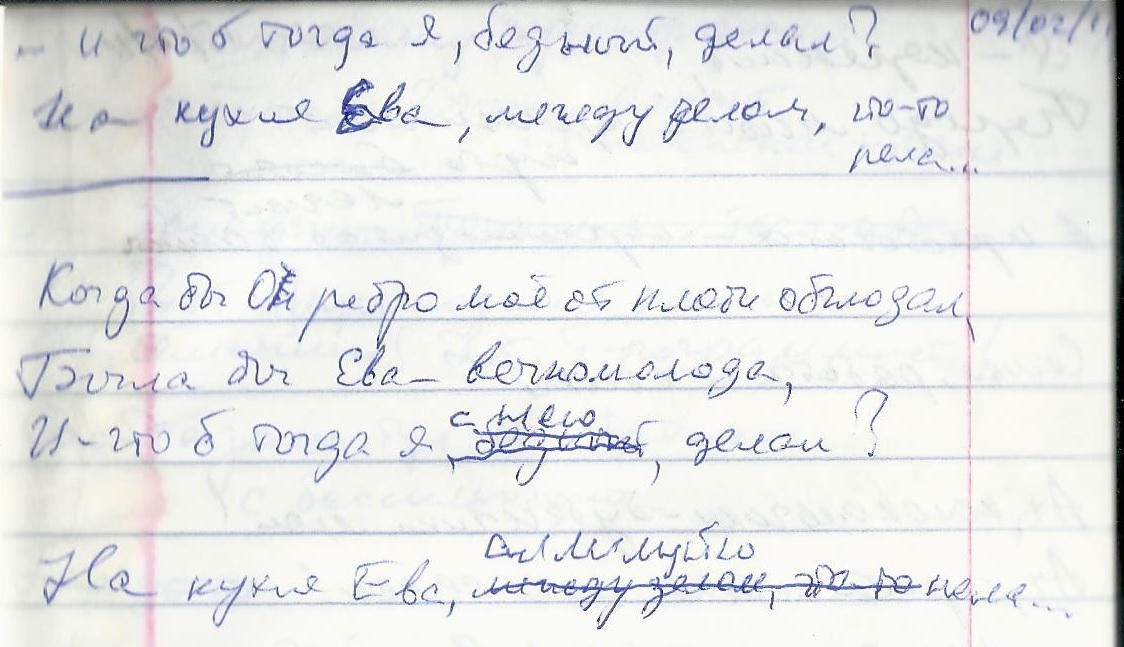 09/02/11
- И что б тогда я, бедный, делал?
На кухне Ева, между делом, что-то
пела...
Когда бы Он ребро моё от плоти обглодал,
Была бы Ева вечномолода,
с нею
И что б тогда я, бедный, делал?
аллилуйю
На кухне Ева, между делом, что-то пела...